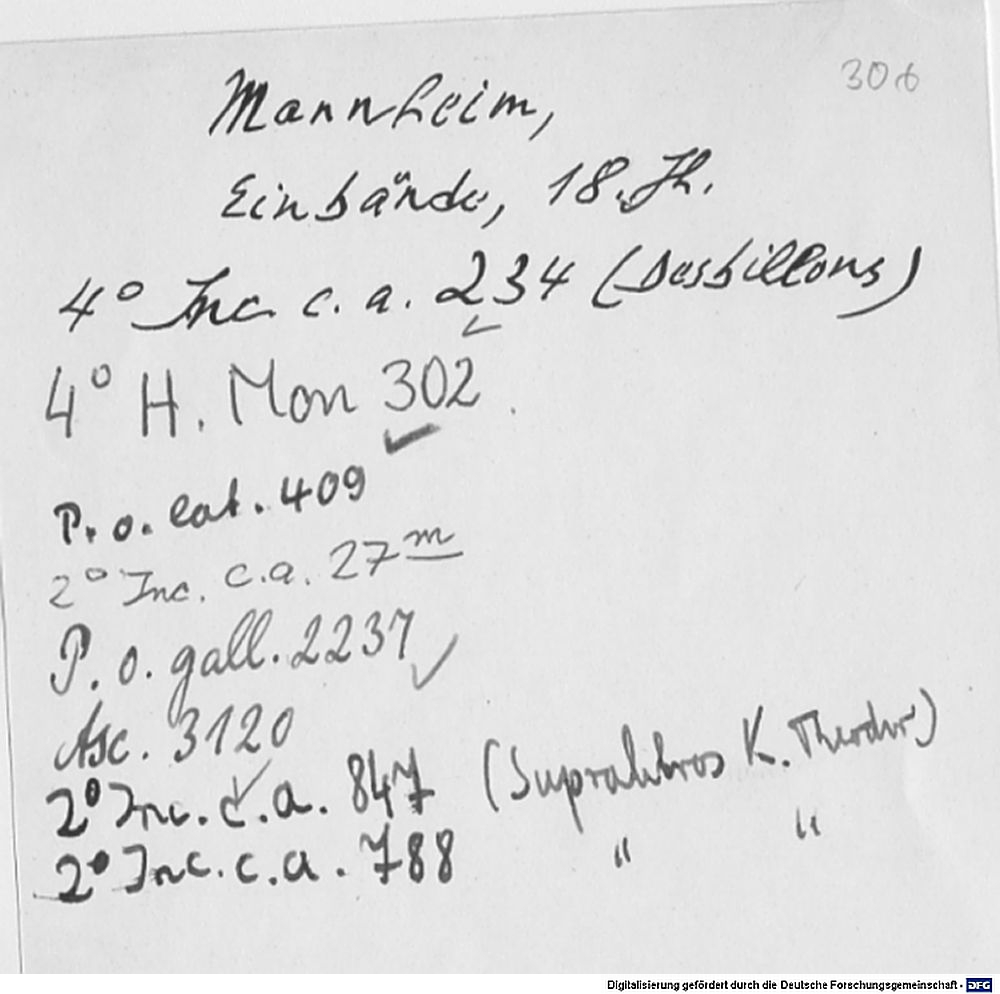 306
Mannheim,
Einbände, 18. Jh.
4° Inc. c. a. 234 (Desbillons)
4° H. Mon 302
P. o. lat. 409
2° Inc. c.a. 27 m
P. o. gall. 2237
Asc. 3120
2° Inc. c. a. 847 (Supralibros K. Theodor)
2° Inc. c. a. 788 " "
Digitalisierung gefördert durch die Deutsche Forschungsgemeinschaft - DFG